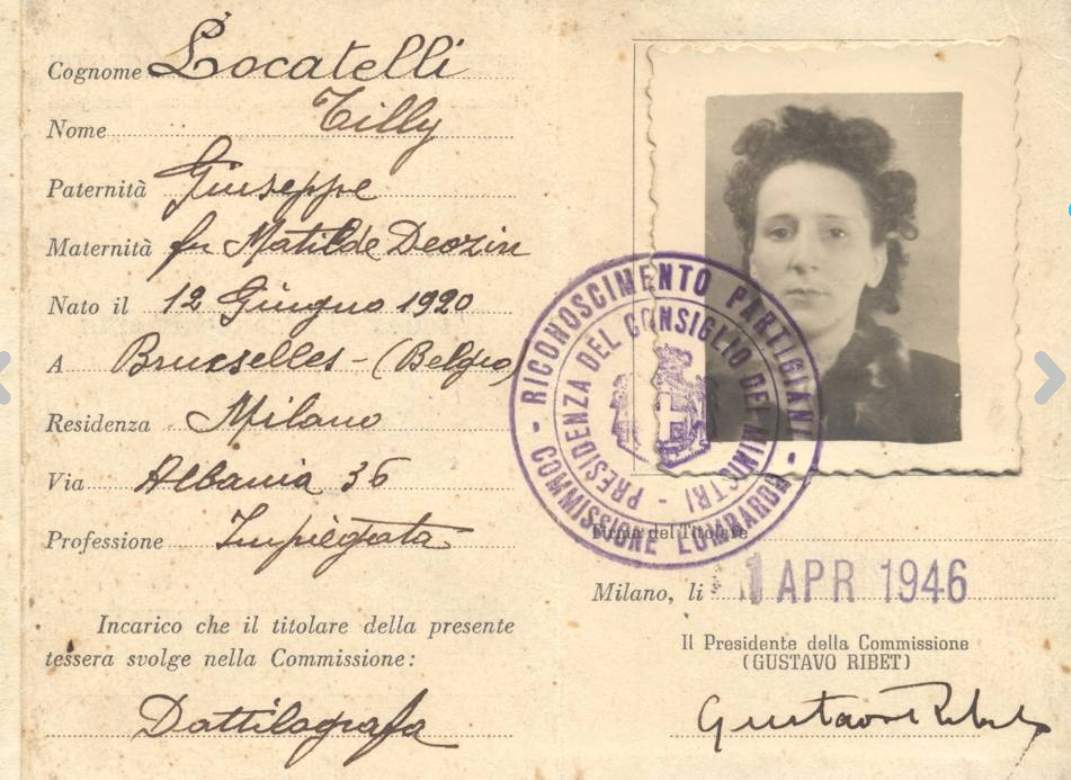 Cognome Locatelli
Nome Tilly
Paternità Giuseppe
Maternità fu Matilde Deozin
Nato il 12 Giugno 1920
A Bruxselles - (Belgio)
Residenza Milano
Via Albania 36
Professione Impiegata
Incarico che il titolare della presente
tessera svolge nella Commissione:
Dattilografa
- RICONOSCIMENTO PARTIGIANI -
COMMISSIONE LOMBARDA
PRESIDENZA DEL CONSIGLIO DEI MINISTRI -
Firma del Titolare
Milano, li 1 APR 1946
Il Presidente della Commissione
(GUSTAVO RIBET)
Gustavo Ribet